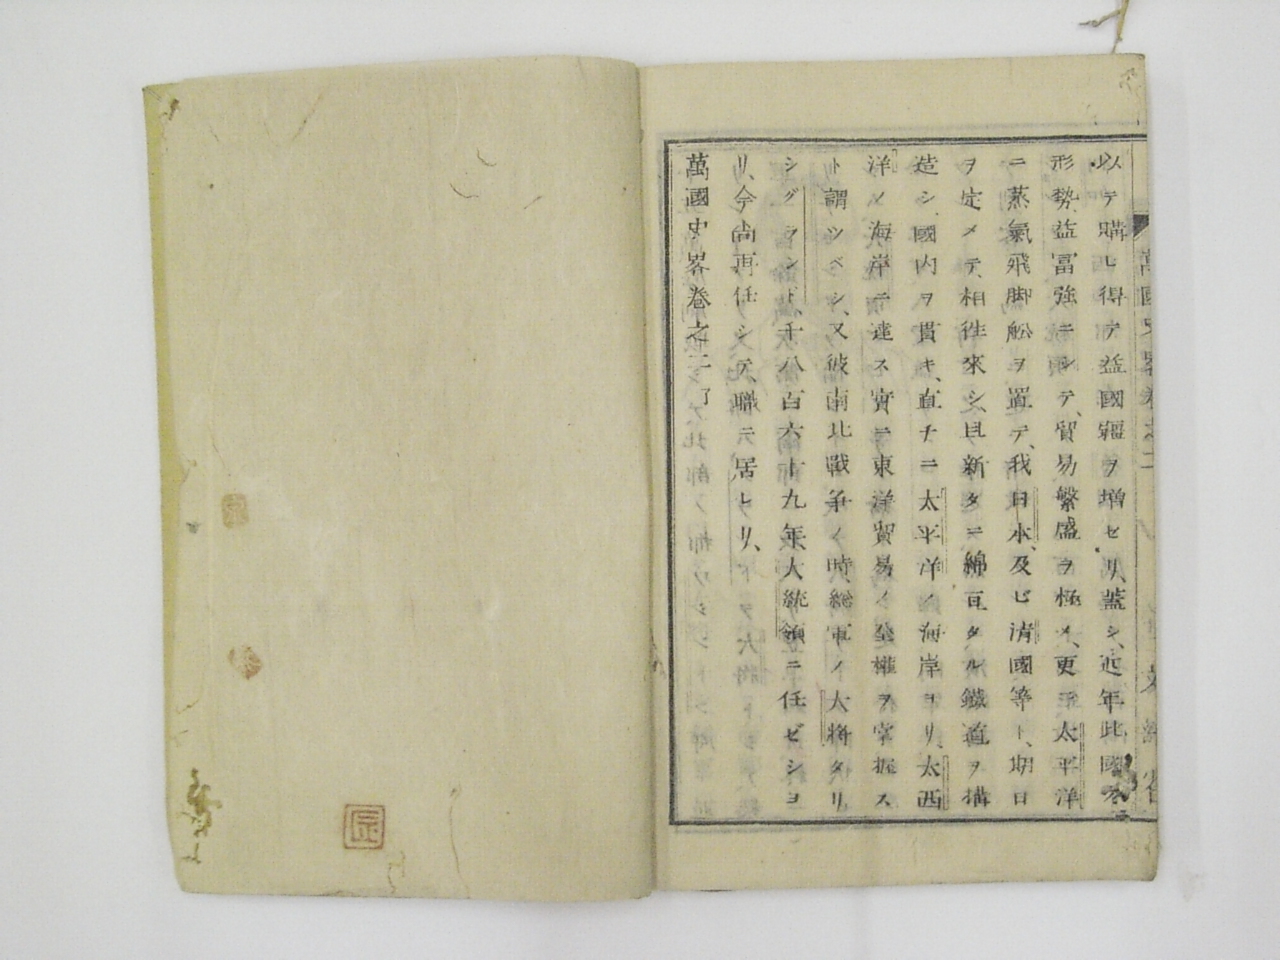 以テ購ヒ得テ益國疆ヲ増セリ、蓋シ、近年此國ノ
形勢、益冨強ニシテ、貿易繁盛ヲ極メ、更ニ太平洋
ニ蒸氣飛脚舩ヲ置テ、我日本、及ビ清國等ト、期日
ヲ定メテ、相徃來シ、且新タニ綿亘タル鐵道ヲ搆
造シ、國内ヲ貫キ、直チニ太平洋ノ海岸ヨリ、太西
洋ノ海岸ニ達ス實ニ東洋貿易ノ全權ヲ掌握ス
ト謂ツベシ、又彼南北戰争ノ時總軍ノ大將タリ
シグラント、千八百六十九年大統領ニ任ゼシヨ
リ、今尚再任シテ職ニ居レリ、
萬國史畧巻之二
萬國史畧巻之二